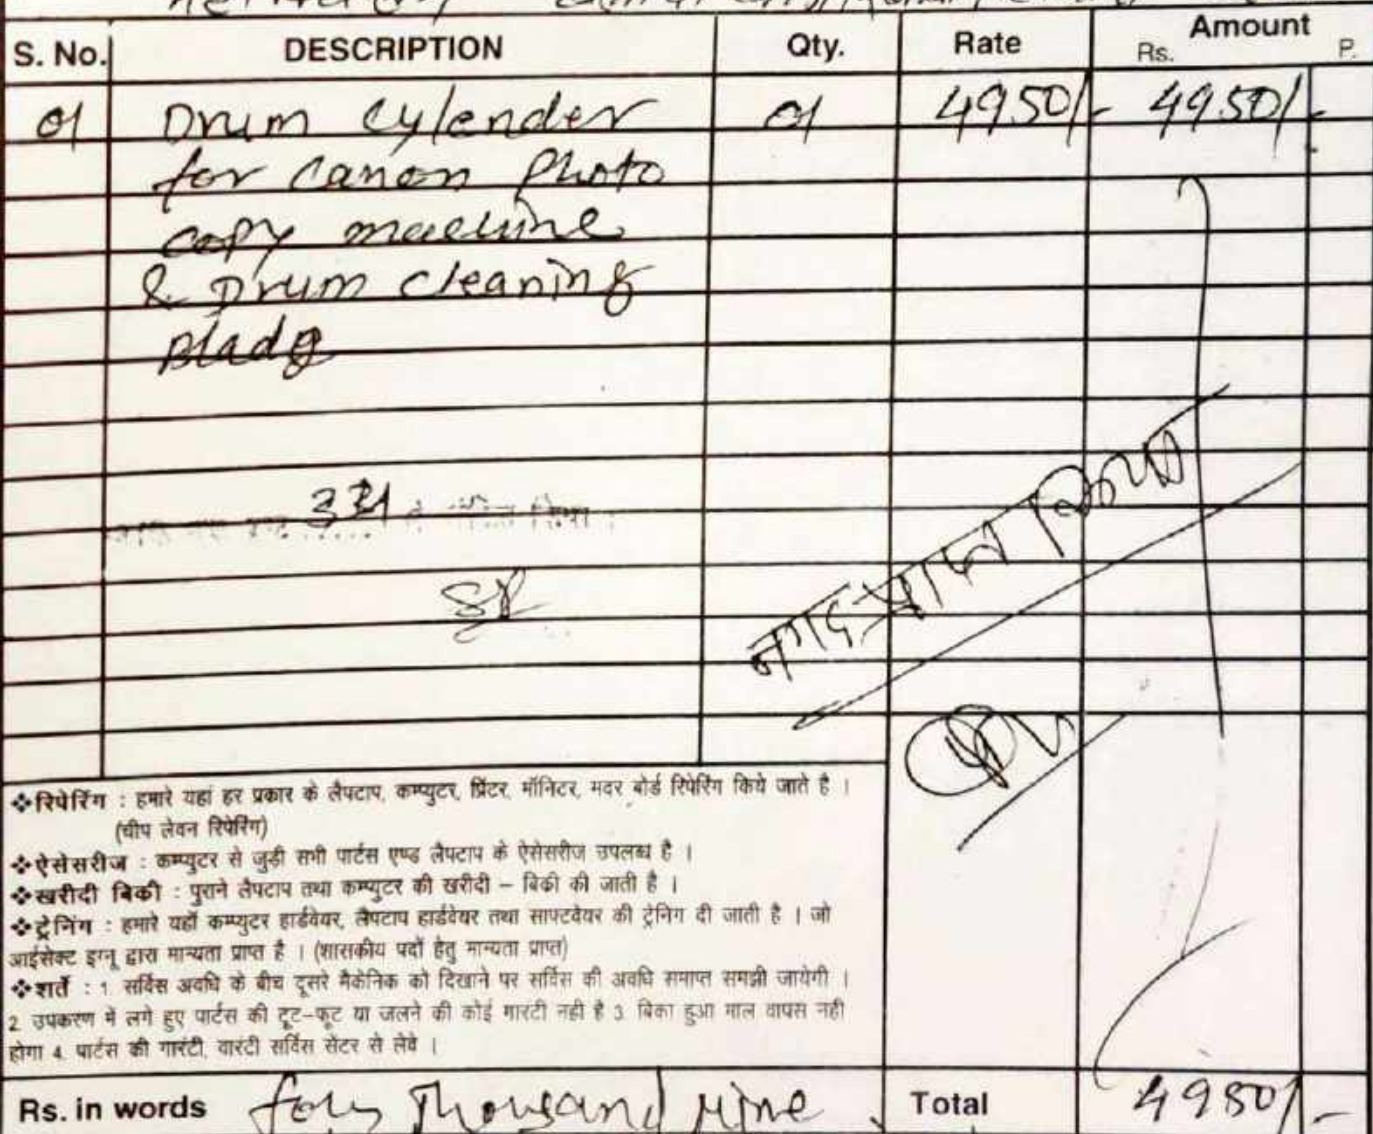 S. No. DESCRIPTION Qty. Rate Amount
Rs. P.
01 Drum Cylender 01 4950/- 4950/-
for Canon Photo
copy machine
& Drum cleaning
Blade
331
नगद प्राप्त किया
❖रिपेरिंग : हमारे यहां हर प्रकार के लैपटाप, कम्प्युटर, प्रिंटर, मॉनिटर, मदर बोर्ड रिपेरिंग किये जाते है ।
(चीप लेवन रिपेरिंग)
❖ऐसेसरीज : कम्प्युटर से जुड़ी सभी पार्टस एण्ड लैपटाप के ऐसेसरीज उपलब्ध है ।
❖खरीदी बिकी : पुराने लैपटाप तथा कम्प्युटर की खरीदी – बिकी की जाती है ।
❖ट्रेनिंग : हमारे यहाँ कम्प्युटर हार्डवेयर, लैपटाप हार्डवेयर तथा साफ्टवेयर की ट्रेनिग दी जाती है । जो
आईसेक्ट इग्नू द्वारा मान्यता प्राप्त है । (शासकीय पदों हेतु मान्यता प्राप्त)
❖शर्ते : 1. सर्विस अवधि के बीच दूसरे मैकेनिक को दिखाने पर सर्विस की अवधि समाप्त समझी जायेगी ।
2. उपकरण में लगे हुए पार्टस की टूट-फूट या जलने की कोई गारंटी नही है 3. बिका हुआ माल वापस नही
होगा 4. पार्टस की गारंटी, वारंटी सर्विस सेंटर से लेवे ।
Rs. in words four Thousand Nine Total 4950/-